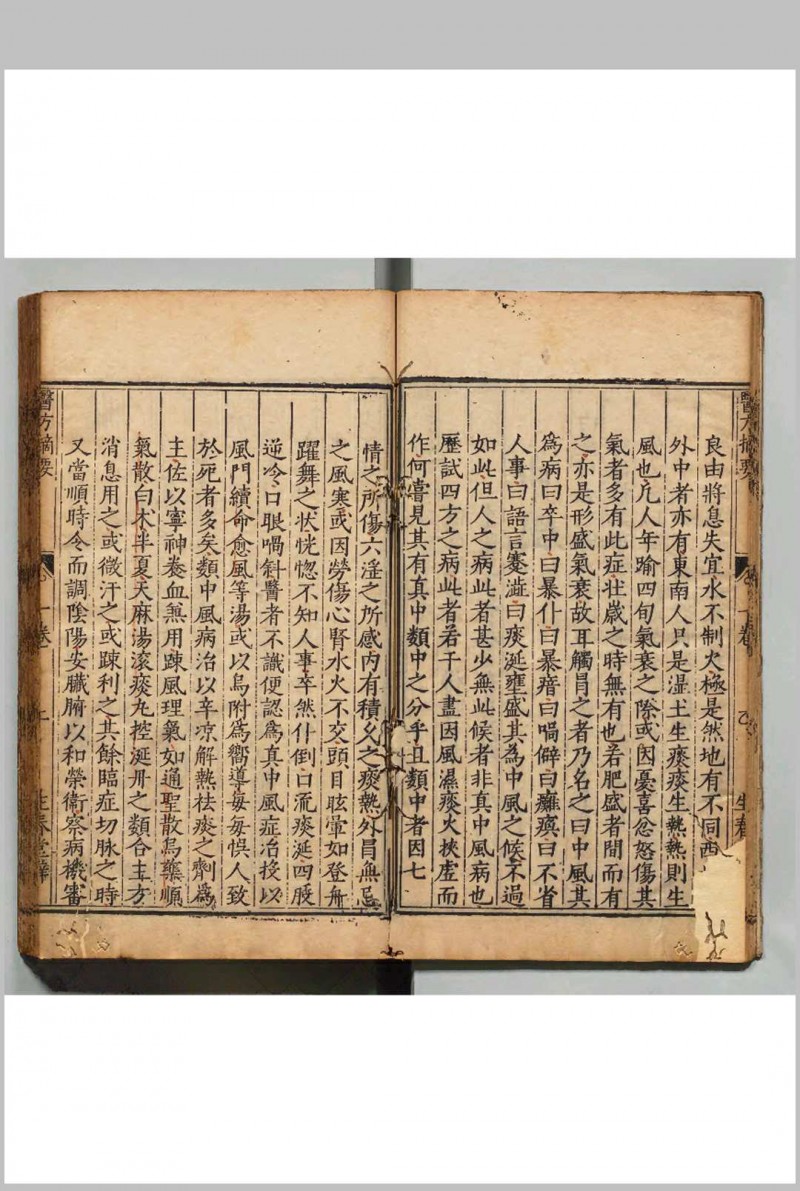 醫方摘要
一卷
生春
良由將息失宜水不制火極是然地有不同西
外中者亦有東南人只是湿土生痰痰生熱熱則生
風也凢人年踰四旬氣衰之際或因憂喜忿怒傷其
氣者多有此症壮歲之時無有也若肥盛者間而有
之亦是形盛氣衰故耳觸冐之者乃名之曰中風其
為病曰卒中曰暴仆曰暴瘖曰喎僻曰癱瘓曰不省
人事曰語言蹇澁曰痰涎壅盛其為中風之候不過
如此但人之病此者甚少無此候者非真中風病也
歷試四方之病此者若干人盡因風濕痰火挾虗而
作何嘗見其有真中類中之分乎且類中者因七
情之所傷六淫之所感内有積久之痰熱外冐無忌
之風寒或因勞傷心腎水火不交頭目眩暈如登舟
躍舞之状恍惚不知人事卒然仆倒口流痰涎四肢
逆冷口眼喎斜醫者不識便認為真中風症治投以
風門續命愈風等湯或以烏附為嚮導每每悞人致
於死者多矣類中風病治以辛凉解熱祛痰之劑為
主佐以寧神養血兼用踈風理氣如通聖散烏藥順
氣散白术半夏天麻湯滚痰丸控涎丹之類合主方
消息用之或微汗之或踈利之其餘臨症切脉之時
又當順時令而調陰陽安臟腑以和榮衛察病機審
醫方摘要
一卷
生春堂